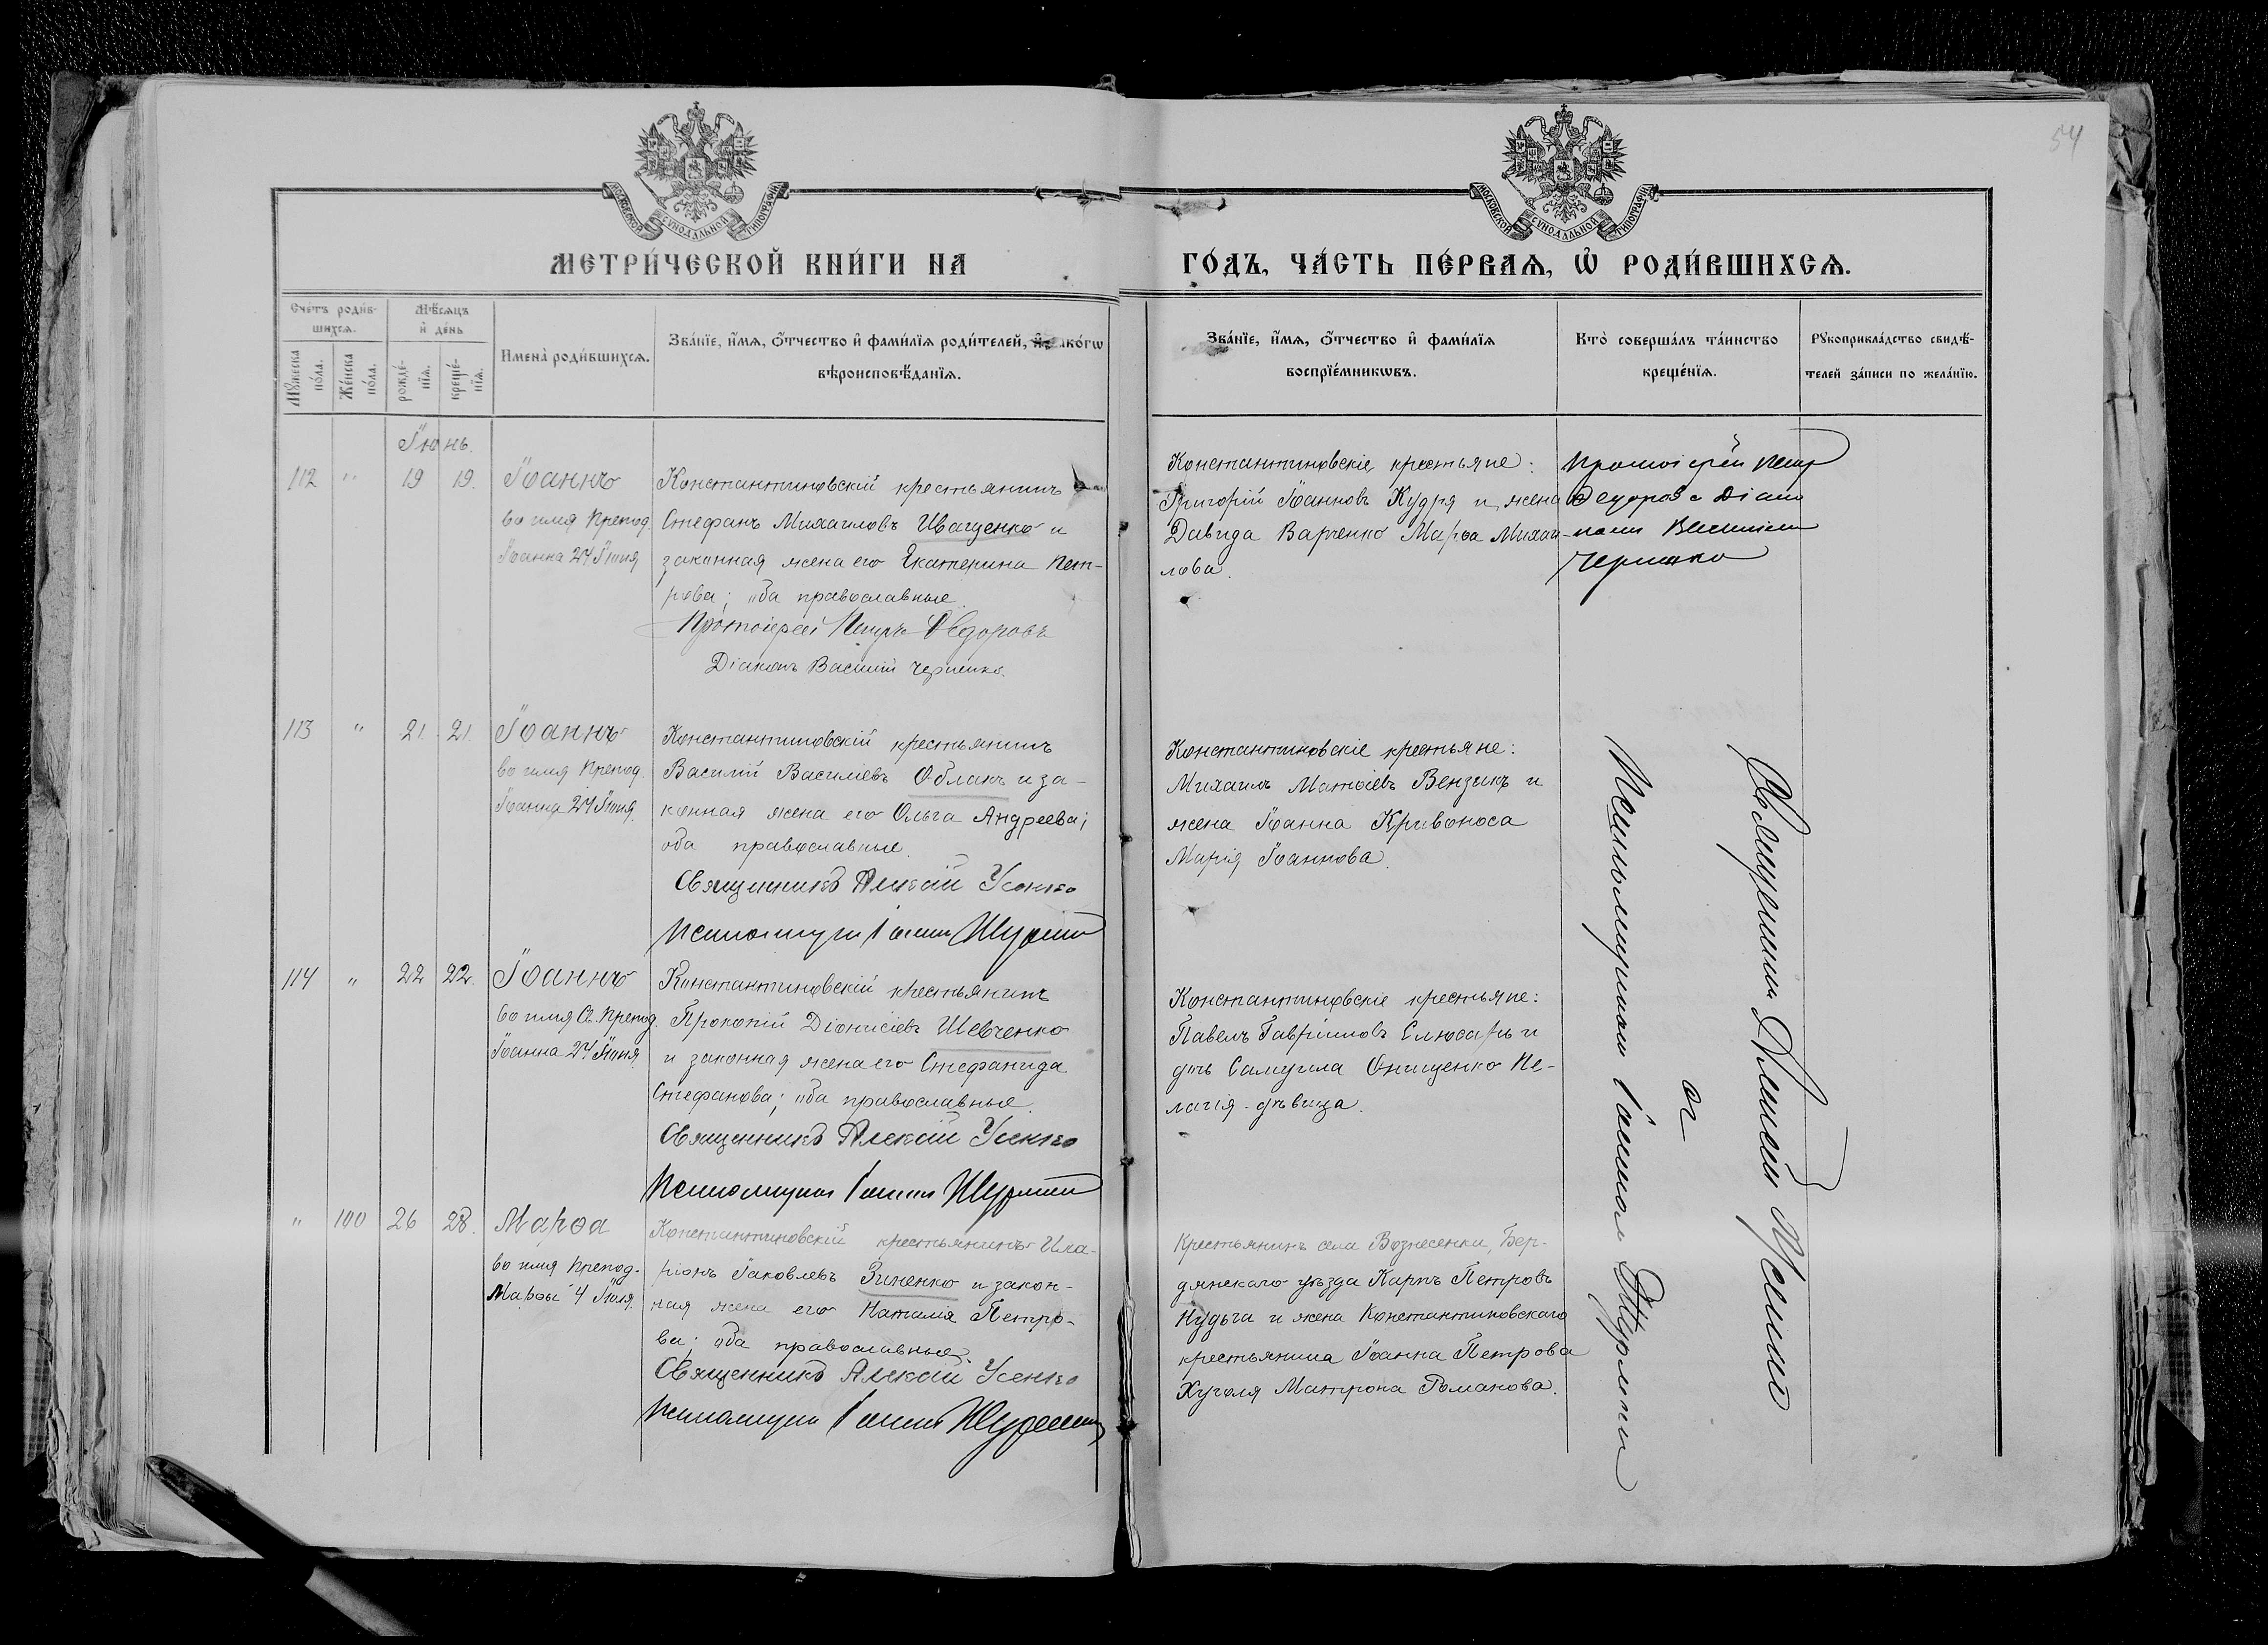 54
МОСКОВСКОЙ СУНОДАЛЬНОЙ ТИПОГРАФІИ
МОСКОВСКОЙ СУНОДАЛЬНОЙ ТИПОГРАФІИ
МЕТРИ́ЧЕСКОЙ КНИ́ГИ НА
ГО́ДЪ, ЧА́СТЬ ПЕ́РВАѦ, Ѡ РОДИ́ВШИХСѦ.
Сче́тъ роди́в-
шихсѧ.
Мѣ́сѧцъ
и҆ де́нь
Мꙋ́жеска
по́ла.
Же́нска
по́ла.
рожде́-
нїѧ.
креще́-
нїѧ.
Имена̀ роди́вшихсѧ.
Зва́нїе, и҆́мѧ, ѻ҆́тчество и҆ фами́лїѧ роди́телей, и҆ како́гѡ
вѣроисповѣ́данїѧ.
Зва́нїе, и҆́мѧ, ѻ҆́тчество и҆ фами́лїѧ
воспрїе́мникѡвъ.
Кто̀ соверша́лъ та́инство
креще́нїѧ.
Рꙋкоприкла́дство свидѣ́-
телей за́писи по жела́нїю.
Іюнь.
112 " 19 19.
Іоаннъ
во имя Препод.
Іоанна 24 Іюня
Константиновскій крестьянинъ
Стефанъ Михаиловъ Иващенко и
законная жена его Екатерина Пет-
рова; оба православные.
Протоіерей Петръ Ѳедоровъ
Діаконъ Василій Черненко.
Константиновскіе крестьяне:
Григорій Іоанновъ Кудря и жена
Давида Варченко Марѳа Михаи-
лова.
Протоіерей Петр
Ѳедоров с Діако
ном Василием
Черненко
113 " 21. 21.
Іоаннъ
во имя Препод.
Іоанна 24 Іюня.
Константиновскій крестьянинъ
Василій Василіевъ Облакъ и за-
конная жена его Ольга Андреева;
оба православные.
Священникъ Алексій Усенко
Псаломщик Іоанн
Константиновскіе крестьяне:
Михаилъ Матѳіевъ Вензикъ и
жена Іоанна Кривоноса
Марія Іоаннова.
114 " 22 22.
Іоаннъ
во имя Св. Препод.
Іоанна 24 Іюня
Константиновскій крестьянинъ
Прокопій Діонисіевъ Шевченко
и законная жена его Стефанида
Стефанова; оба православные.
Священникъ Алексій Усенко
Псаломщик Іоанн
Константиновскіе крестьяне:
Павелъ Гавріиловъ Слюсарь и
дочь Самуила Онищенко Пе-
лагія - дѣвица.
" 100 26 28.
Марѳа
во имя Препод.
Марѳы 4 Іюля.
Константиновскій крестьянинъ Ила-
ріонъ Іаковлевъ Зиненко и закон-
ная жена его Наталія Петро-
ва; оба православные.
Священникъ Алексій Усенко
Псаломщик Іоанн
Крестьянинъ села Вознесенки, Бер-
дянскаго уѣзда Карпъ Петровъ
Нудьга и жена Константиновскаго
крестьянина Іоанна Петрова
Хуголя Матрона Романова.
Священник Алексій Усенко
с
Псаломщиком Іоанном